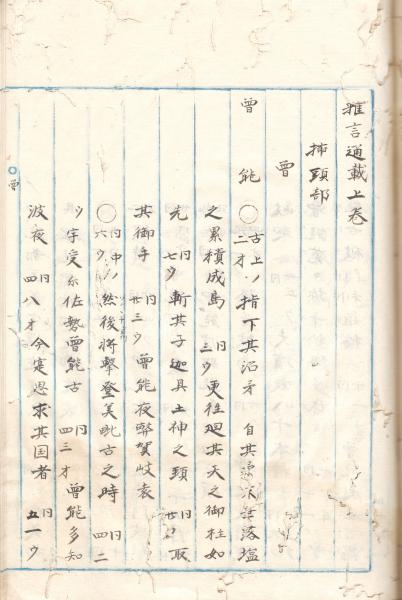 雅言通載上巻
挿頭部
曽
曽能 ○古上ノ二才 指下其沼矛 自其矛末垂落塩
之累積成島 同三ウ 更往廻其天之御柱如
先 同七ウ 斬其子迦具土神之頸 同廿ウ 取
其御手 同廿三ウ 曽能夜弊賀岐袁
○同中ノ六ウ 然後将撃登美毗古之時 同四二
ウ 宇受尓佐勢曽能古 同四三才 曽能多知
波夜 同四八才 今寔思求其国者 同五一ウ
○曽